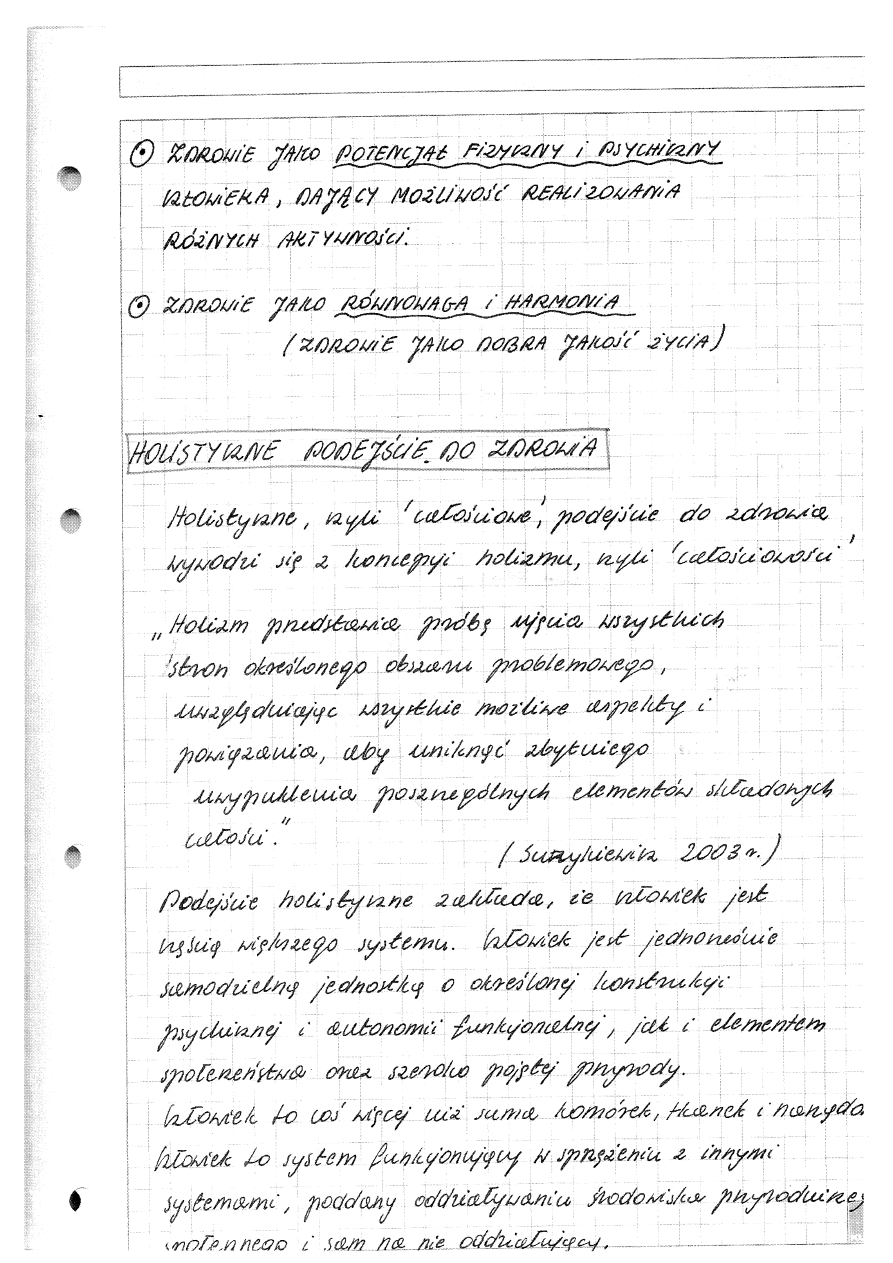 ⊙ ZDROWIE JAKO POTENCJAŁ FIZYCZNY i PSYCHICZNY
CZŁOWIEKA, DAJĄCY MOŻLIWOŚĆ REALIZOWANIA
RÓŻNYCH AKTYWNOŚCI.
⊙ ZDROWIE JAKO RÓWNOWAGA i HARMONIA
(ZDROWIE JAKO DOBRA JAKOŚĆ ŻYCIA)
HOLISTYCZNE PODEJŚCIE DO ZDROWIA
Holistyczne, czyli 'całościowe', podejście do zdrowia
wywodzi się z koncepcji holizmu, czyli 'całościowości'
„Holizm przedstawia próbę ujęcia wszystkich
stron określonego obszaru problemowego,
uwzględniając wszystkie możliwe aspekty i
powiązania, aby uniknąć zbytniego
uwypuklenia poszczególnych elementów składowych
całości."
(Surzykiewicz 2003 r.)
Podejście holistyczne zakłada, że człowiek jest
częścią większego systemu. Człowiek jest jednocześnie
samodzielną jednostką o określonej konstrukcji
psychicznej i autonomii funkcjonalnej, jak i elementem
społeczeństwa oraz szeroko pojętej przyrody.
Człowiek to coś więcej niż suma komórek, tkanek i narządo
Człowiek to system funkcjonujący w sprzężeniu z innymi
systemami, poddany oddziaływaniu środowiska przyrodniczeg
społecznego i sam na nie oddziałujący.